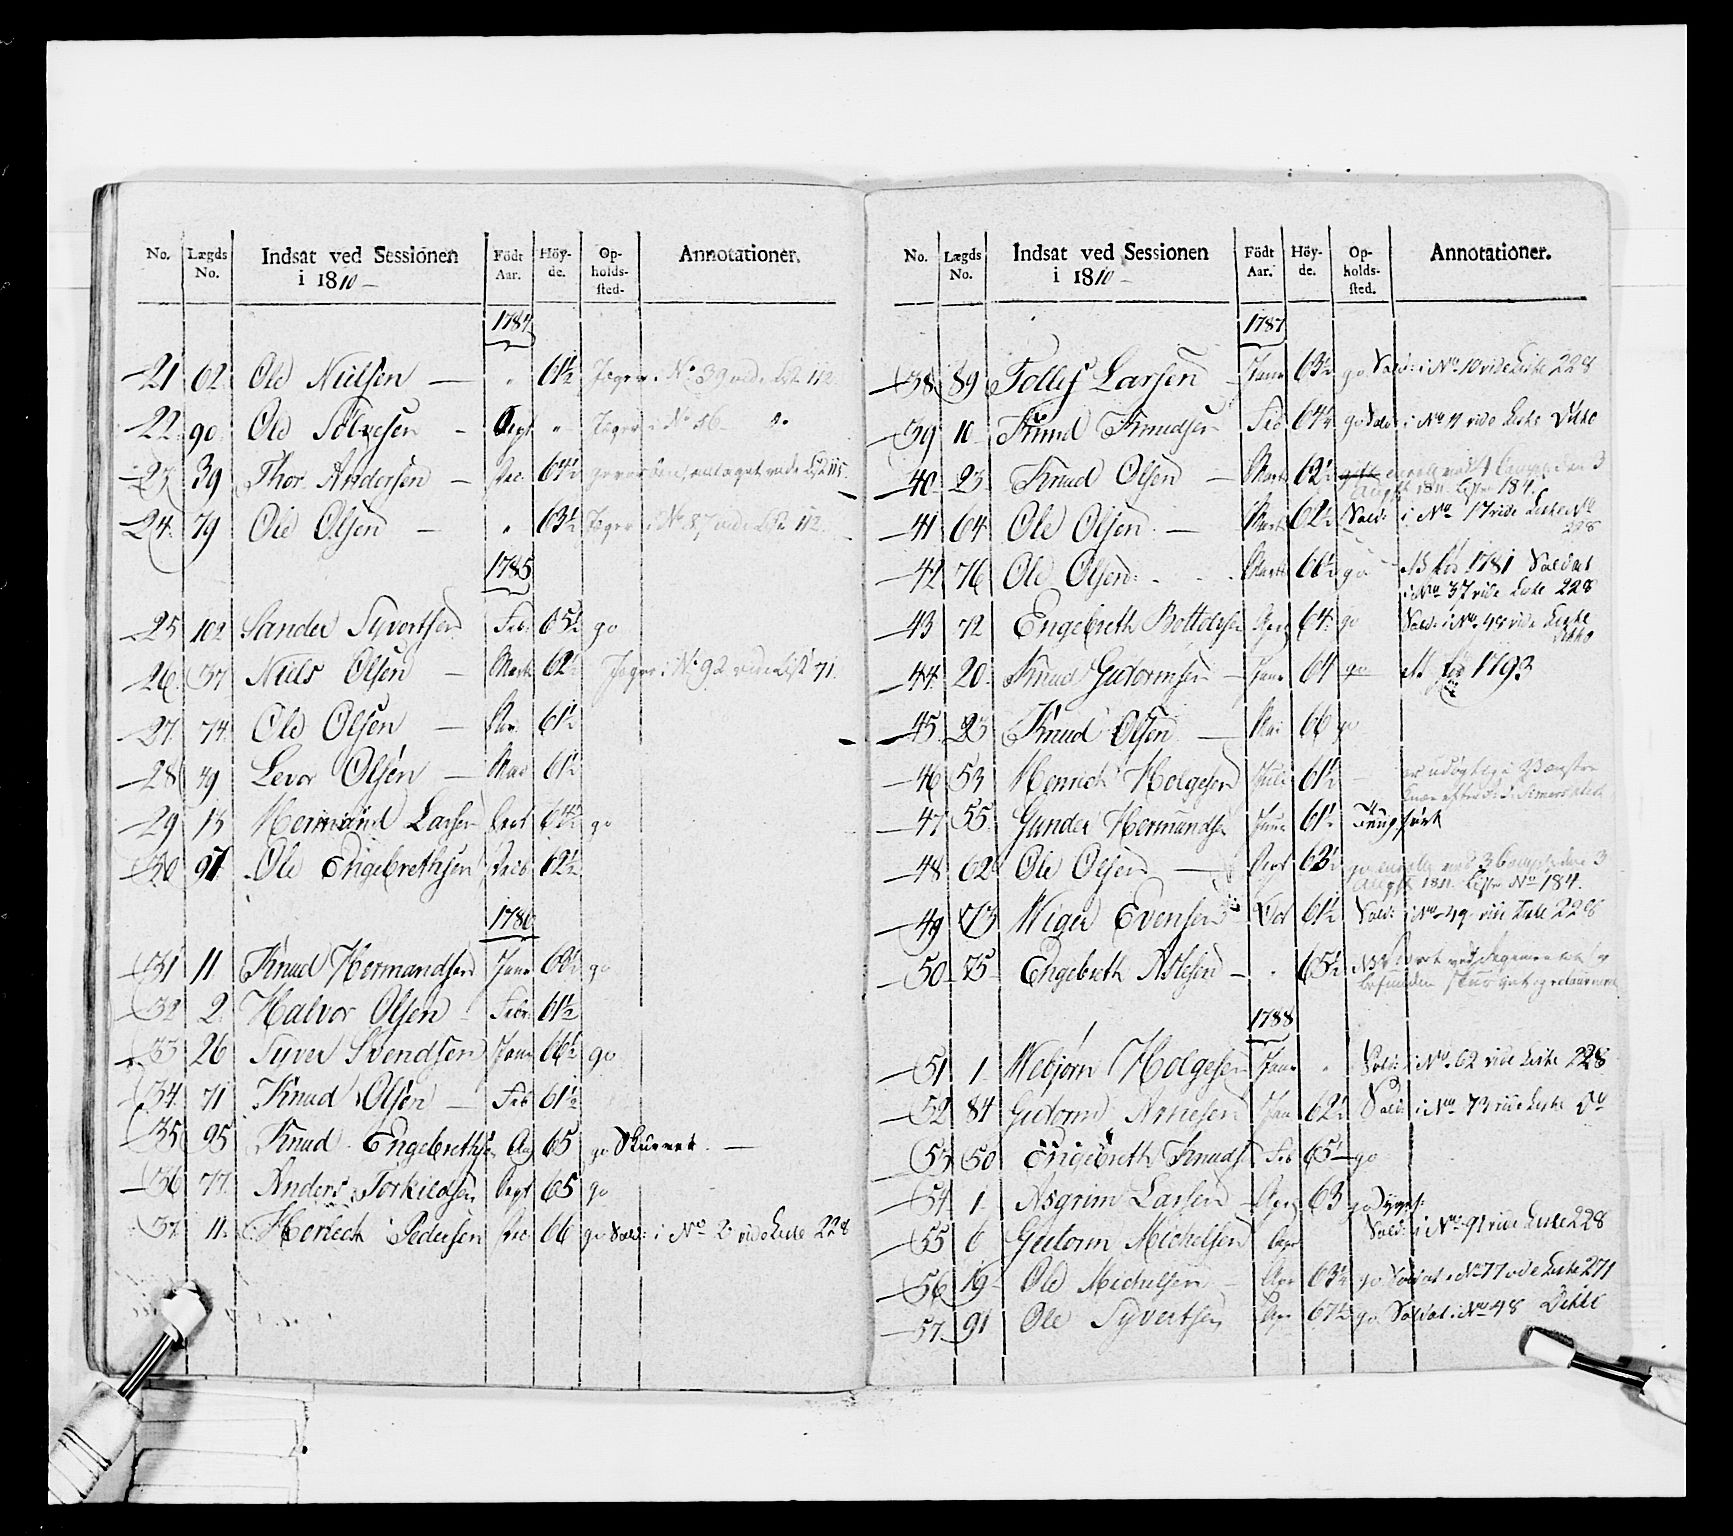 No. Lægds No. Indsat ved Sessionen i 1810 Födt Aar. Höyde. Opholdssted. Annotationer.
1784
21 62 Ole Nielsen — " 61½ Jæger i No 39 vide List 112
22 90 Ole Sölvesen - Sept " Jæger i No 56 do
23 39 Thor Andersen - Dec. 64½
24 79 Ole Olsen — " 63½ Jæger i No 87 vide List 112
1785
25 102 Sander Syvertsen Feb. 65½ go
26 37 Niels Olsen - Marts 62½ Jæger i No 92 vide List 71.
27 74 Ole Olsen — 61½
28 49 Levor Olsen — Mai 61½
29 15 Hermand Larsen Sept 64½ go
30 91 Ole Engebrethsen Decb 62½
1786
31 11 Knud Hermandsen Janr go
32 2 Halvor Olsen - Febr 61½
33 26 Siver Svendsen Janr 66½ go
34 71 Knud Olsen — Feb 61½
35 95 Knud Engebrethse Aug 65 go Skurvet. —
36 77 Anders Torkildsen Sept 65 go
37 11 Herlech Pedersen Dec 66 go Sold: i No 2 vide Liste 228
No. Lægds No. Indsat ved Sessionen i 1810 Födt Aar. Höyde. Opholdssted. Annotationer.
1787
38 89 Tollef Larsen Janr 63½ go Sold: i No 10 vide Liste 228
39 10 Knud Knudsen Feb 64½ go Sold: i No 11 vide Liste Ditto
40 23 Knud Olsen — Marts 62½
Aug 1811 Liste 184.
41 64 Ole Olsen — Marts 62½ Sold: i No 17 vide Liste No
228
42 76 Ole Olsen - Marts 66½ go NB föd 1781 Soldat
i No 37 vide Liste 228
43 72 Engebreth Bottolfse Apr 64 go Sold: i No 48 vide Liste
Ditto
44 20 Knud Guttormsen - Janr 64 go NB föd 1793
45 23 Knud Olsen — Mai 66 go
46 53 Henrich Holgesen Juli 61½ — er udygtig i Venstre
47 55 Gunder Hermundse Juni 61½
48 62 Ole Olsen — Sept 62½
Augst 1811 Liste No 184.
49 73 Wiger Evensen Oct 61½ Sold: i No 49 vide Liste 228
50 75 Engebreth Aslesen — " 65½
befunden skurvet og
1788
51 1 Webjørn Holgesen Janr " Sold: i No 62 vide Liste 228
52 84 Guttorm Arnesen Jan 62½ Sold: i No 73 vide Liste Do
53 50 Engebreth Knuds Feb 65½ go
54 1 Asgrim Larsen Apr 63 go
55 6 Guttorm Michelsen Sept Sold: i No 91 vide Liste 228
56 19 Ole Michelsen - Nov 63½ go Soldat i No 17 vide Liste 271
57 91 Ole Syvertsen 67½ go Soldat i No 48 Ditto